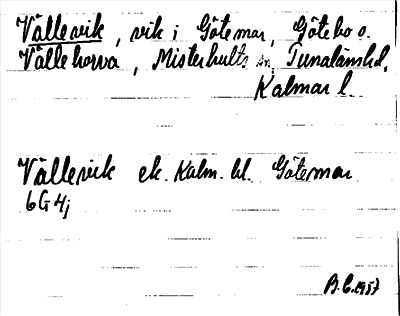 Vällevik, vik i Götemar, Götebo o.
Vällehorva, Misterhults sn, Tunalänshd,
Kalmar l.
Vällevik ek. Kalm. bl. Götemar
6G4j
B.C. 1957